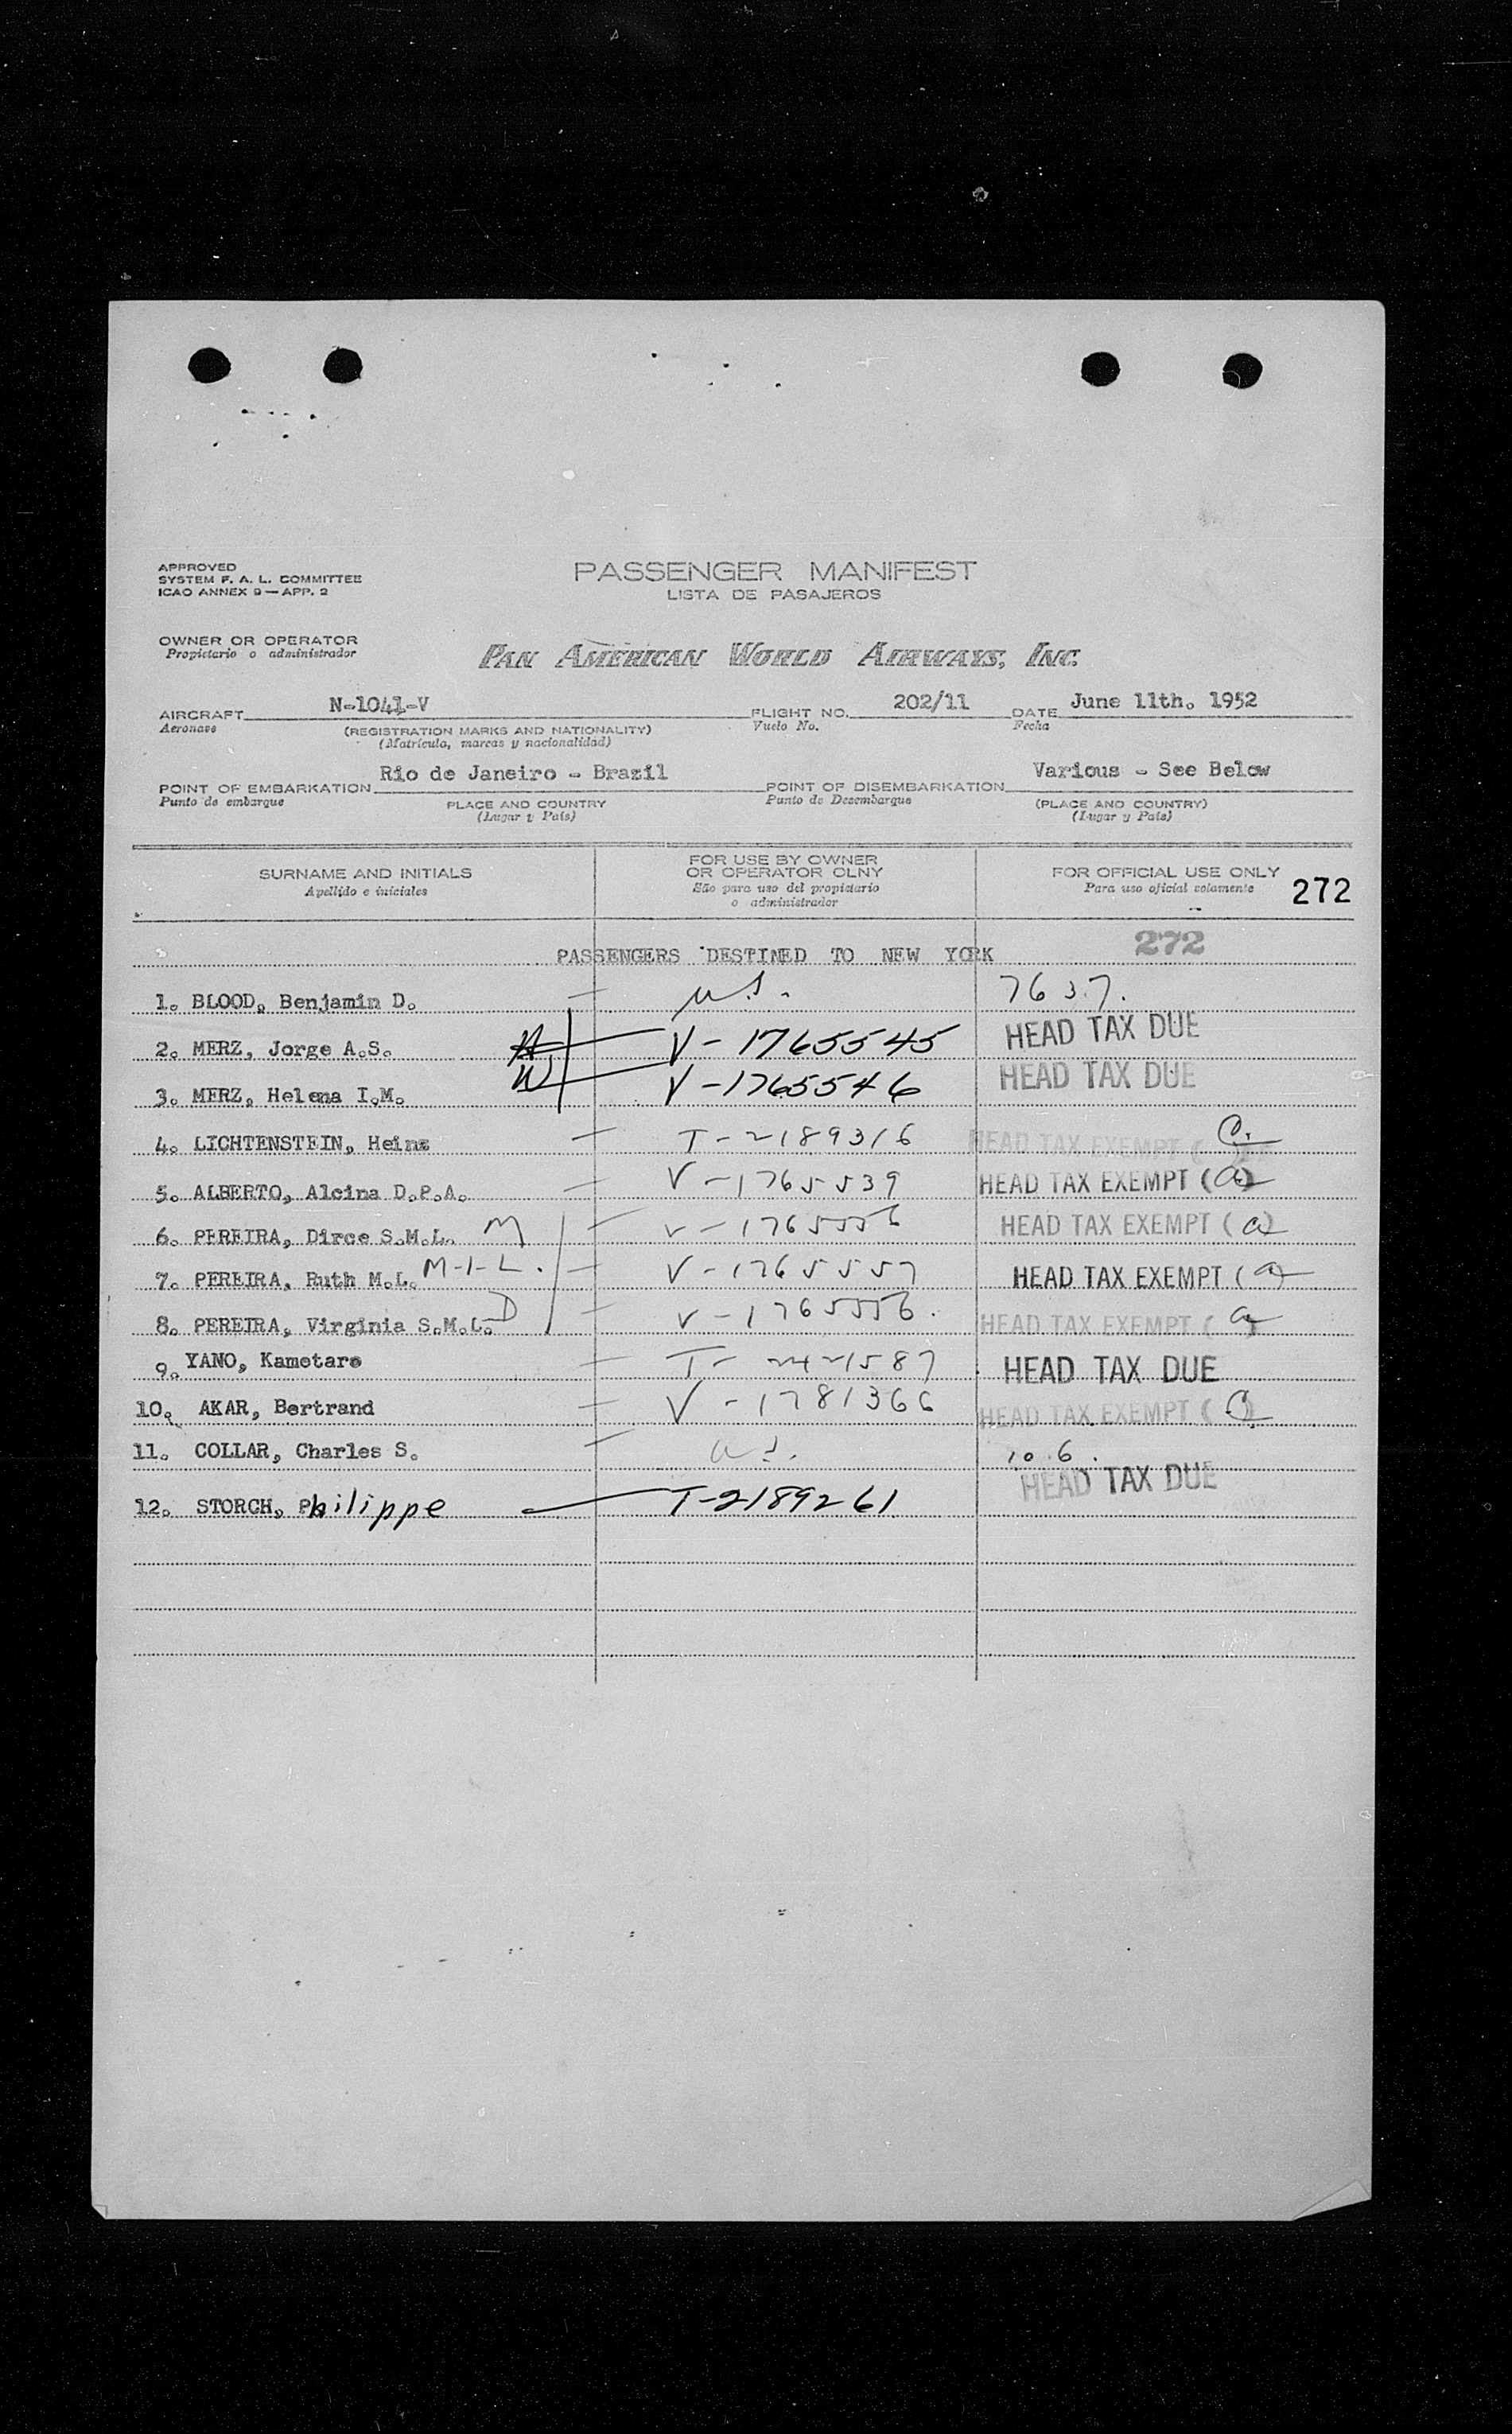 APPROVED
SYSTEM F. A. L. COMMITTEE
ICAO ANNEX 9—APP. 2
PASSENGER MANIFEST
LISTA DE PASAJEROS
OWNER OR OPERATOR
Propietario o administrador
PAN AMERICAN WORLD AIRWAYS, INC.
AIRCRAFT N-1041-V FLIGHT NO. 202/11 DATE June 11th. 1952
Aeronave (REGISTRATION MARKS AND NATIONALITY) Vuelo No. Fecha
(Matrícula, marcas y nacionalidad)
POINT OF EMBARKATION Rio de Janeiro - Brazil POINT OF DISEMBARKATION Various - See Below
Punto de embarque PLACE AND COUNTRY Punto de Desembarque (PLACE AND COUNTRY)
(Lugar y País) (Lugar y País)
SURNAME AND INITIALS
Apellido e iniciales
FOR USE BY OWNER
OR OPERATOR OLNY
São para uso del propietario
o administrador
FOR OFFICIAL USE ONLY
Para uso oficial solamente
272
PASSENGERS DESTINED TO NEW YORK 272
1. BLOOD, Benjamin D. — U.S. 7637.
2. MERZ, Jorge A.S. V-1765545 HEAD TAX DUE
3. MERZ, Helena I.M. W V-1765546 HEAD TAX DUE
4. LICHTENSTEIN, Heinz — T-2189316 HEAD TAX EXEMPT (
5. ALBERTO, Alcina D.P.A. — V-1765539 HEAD TAX EXEMPT (a)
6. PEREIRA, Dirce S.M.L. M — V-1765556 HEAD TAX EXEMPT (a)
7. PEREIRA, Ruth M.L. M-I-L. — V-1765557 HEAD TAX EXEMPT (a)
8. PEREIRA, Virginia S.M.L. D — V-1765556. HEAD TAX EXEMPT (a)
9. YANO, Kametaro — T-2421587 HEAD TAX DUE
10. AKAR, Bertrand — V-1781366 HEAD TAX EXEMPT (
11. COLLAR, Charles S. — U.S. 10.6.
12. STORCH, Philippe — T-2189261. HEAD TAX DUE